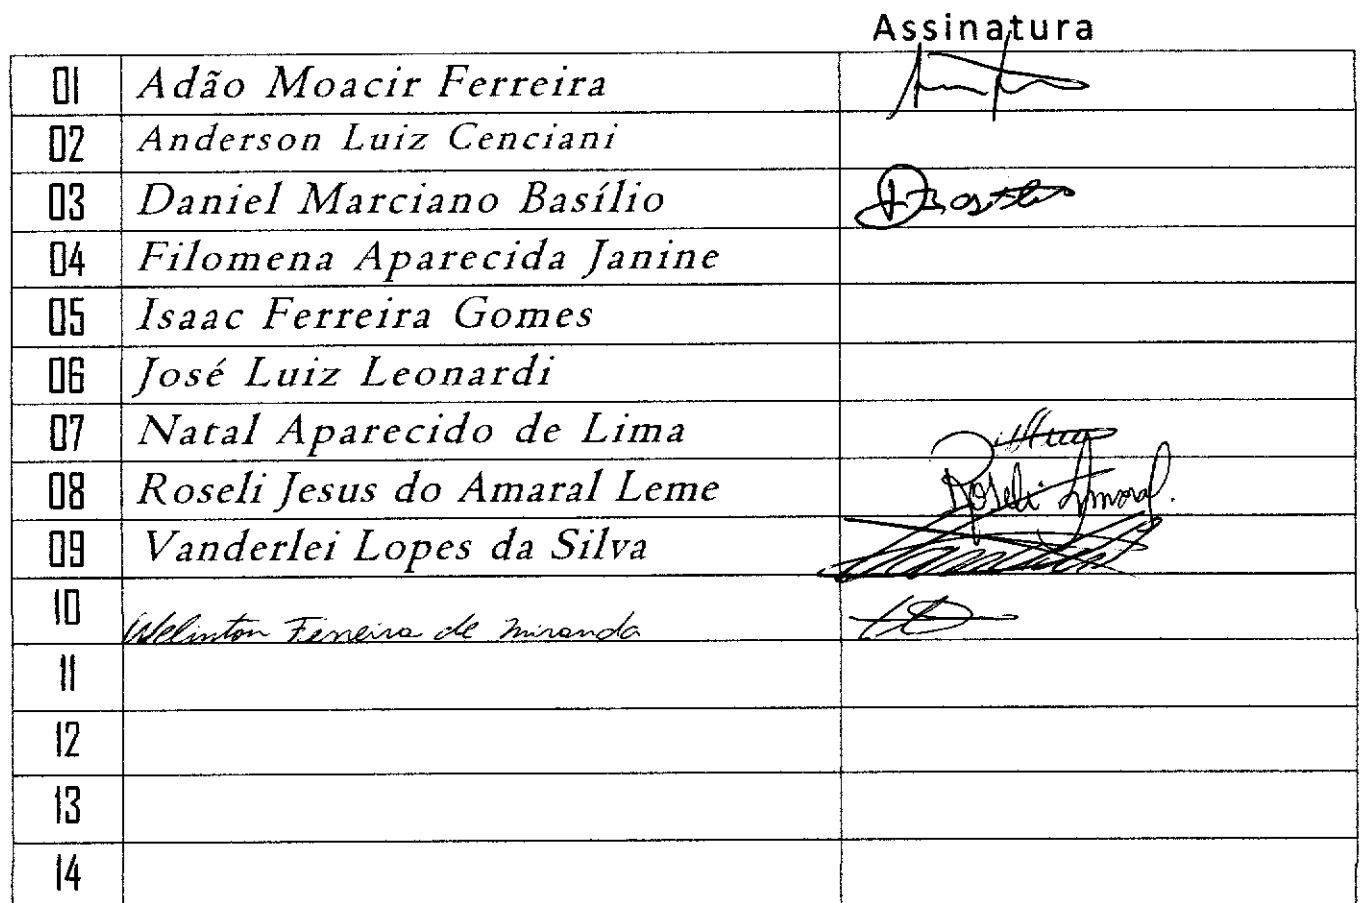 Assinatura
01 Adão Moacir Ferreira
02 Anderson Luiz Cenciani
03 Daniel Marciano Basílio
04 Filomena Aparecida Janine
05 Isaac Ferreira Gomes
06 José Luiz Leonardi
07 Natal Aparecido de Lima
08 Roseli Jesus do Amaral Leme Roseli Amaral.
09 Vanderlei Lopes da Silva
10 Welinton Ferreira de Miranda
11
12
13
14